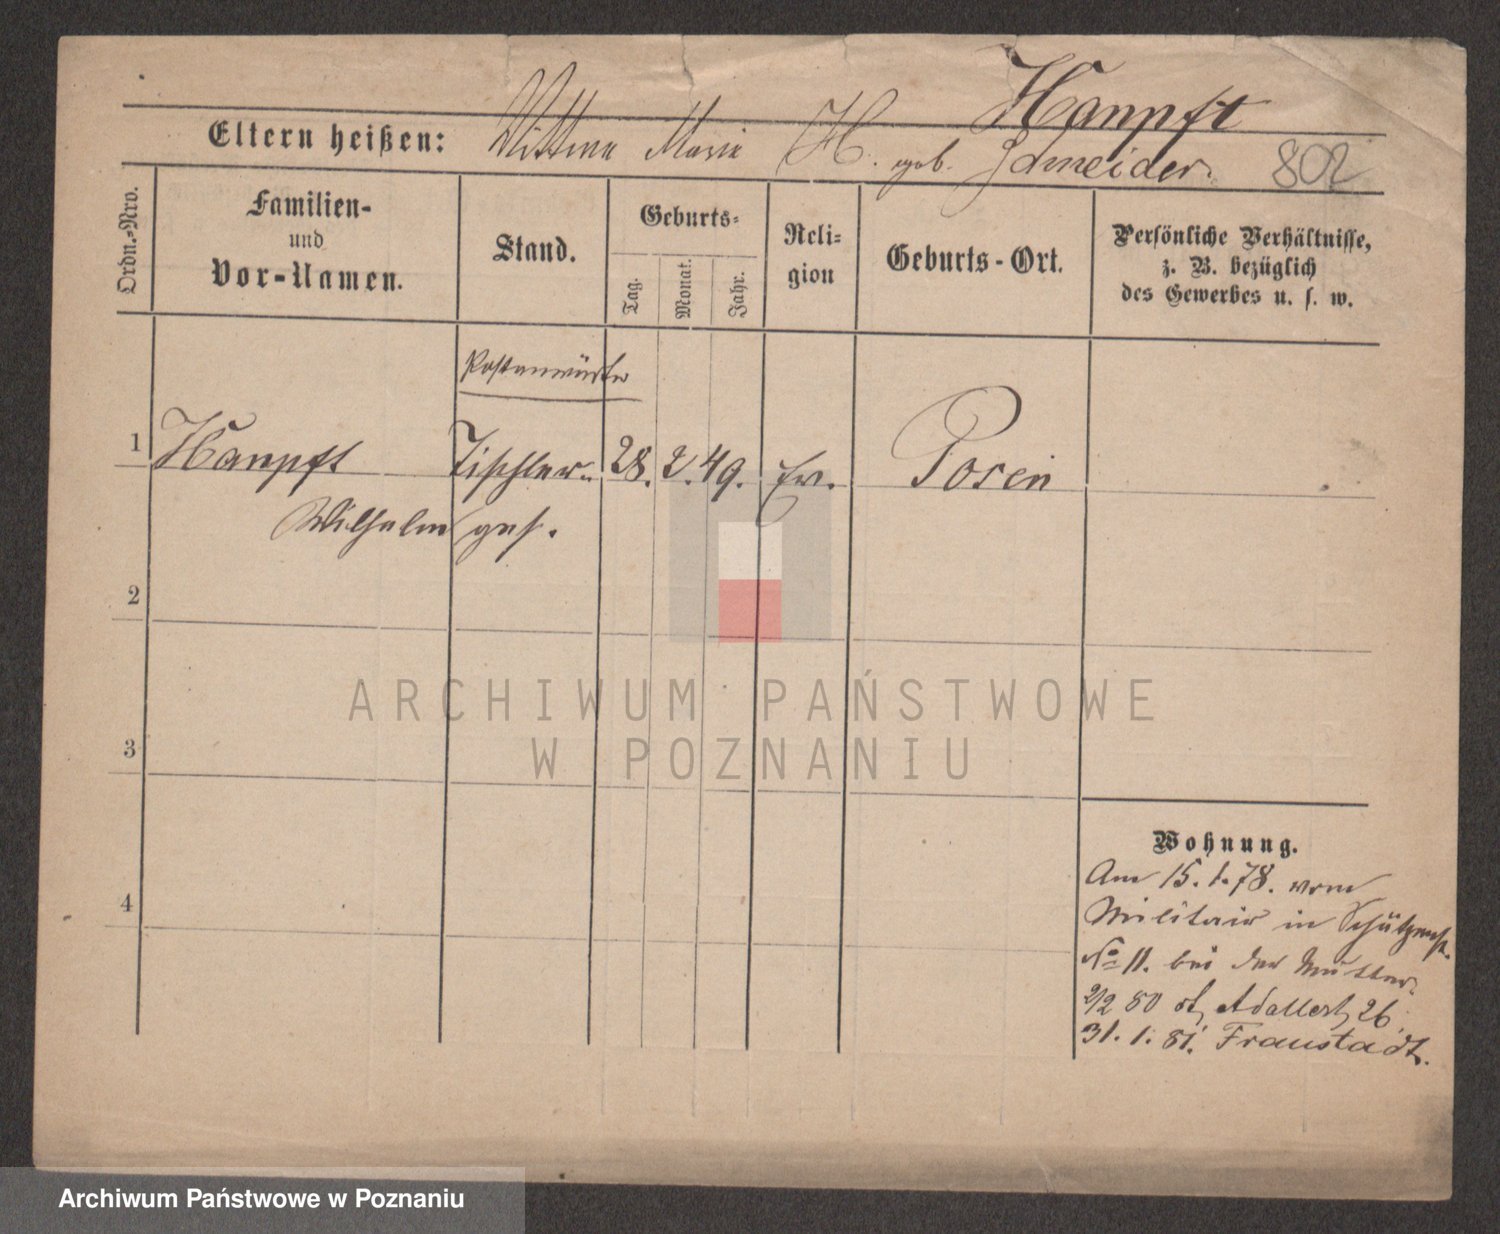 Hanpft
Eltern heißen: Wittwe Marie H. geb. Schneider. 802
Ordn.-Nro.
Familien-
und
Vor-Namen.
Stand.
Geburts-
Tag.
Monat.
Jahr.
Reli-
gion
Geburts-Ort.
Persönliche Verhältnisse,
z. B. bezüglich
des Gewerbes u. s. w.
Postanwärter
1 Hanpft Tischler- 28. 2. 49. Ev. Posen
Wilhelm ges.
2
3
4
Wohnung.
Am 15. 1. 78. vom
Militair in Schützenst.
No 11. bei der Mutter.
2/2 80 St. Adalbert 26
31. 1. 81. Fraustadt.
ARCHIWUM PAŃSTWOWE
W POZNANIU
Archiwum Państwowe w Poznaniu